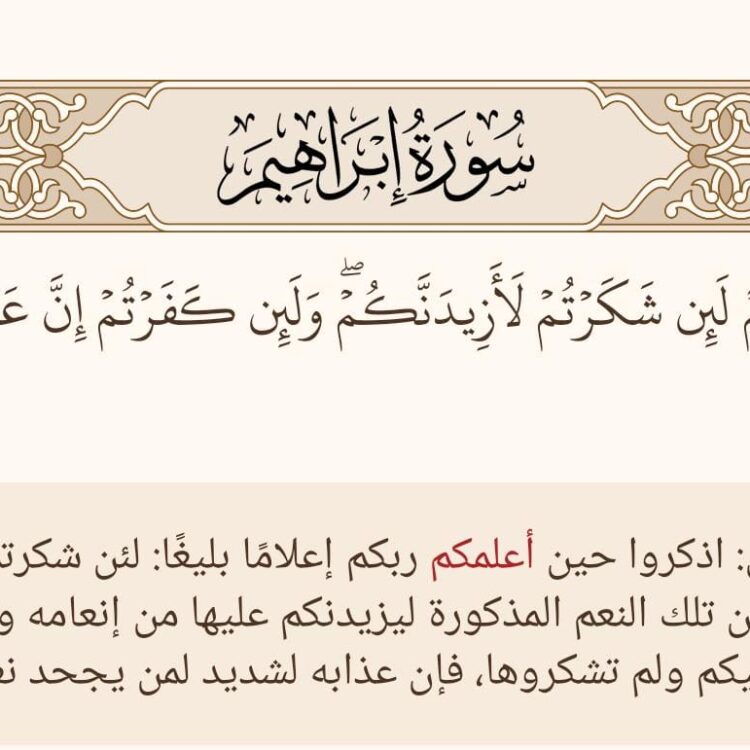 سُورَةُ إِبۡرَاهِيمَ
لَئِن شَكَرۡتُمۡ لَأَزِيدَنَّكُمۡۖ وَلَئِن كَفَرۡتُمۡ إِنَّ عَ
: اذكروا حين أعلمكم ربكم إعلامًا بليغًا: لئن شكرت
ن تلك النعم المذكورة ليزيدنكم عليها من إنعامه و
يكم ولم تشكروها، فإن عذابه لشديد لمن يجحد نع